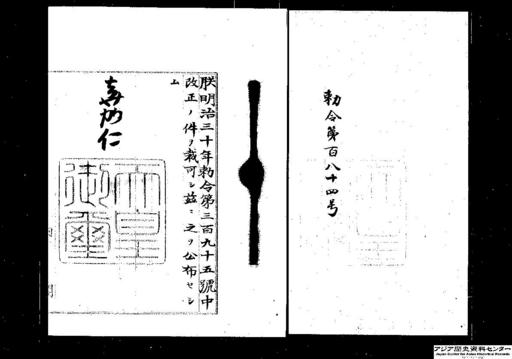 勅令第百八十四号
朕明治三十年勅令第三百九十五號中
改正ノ件ヲ裁可シ茲ニ之ヲ公布セシ
ム
嘉仁
天皇
御璽
アジア歴史資料センター
Japan Center for Asian Historical Records